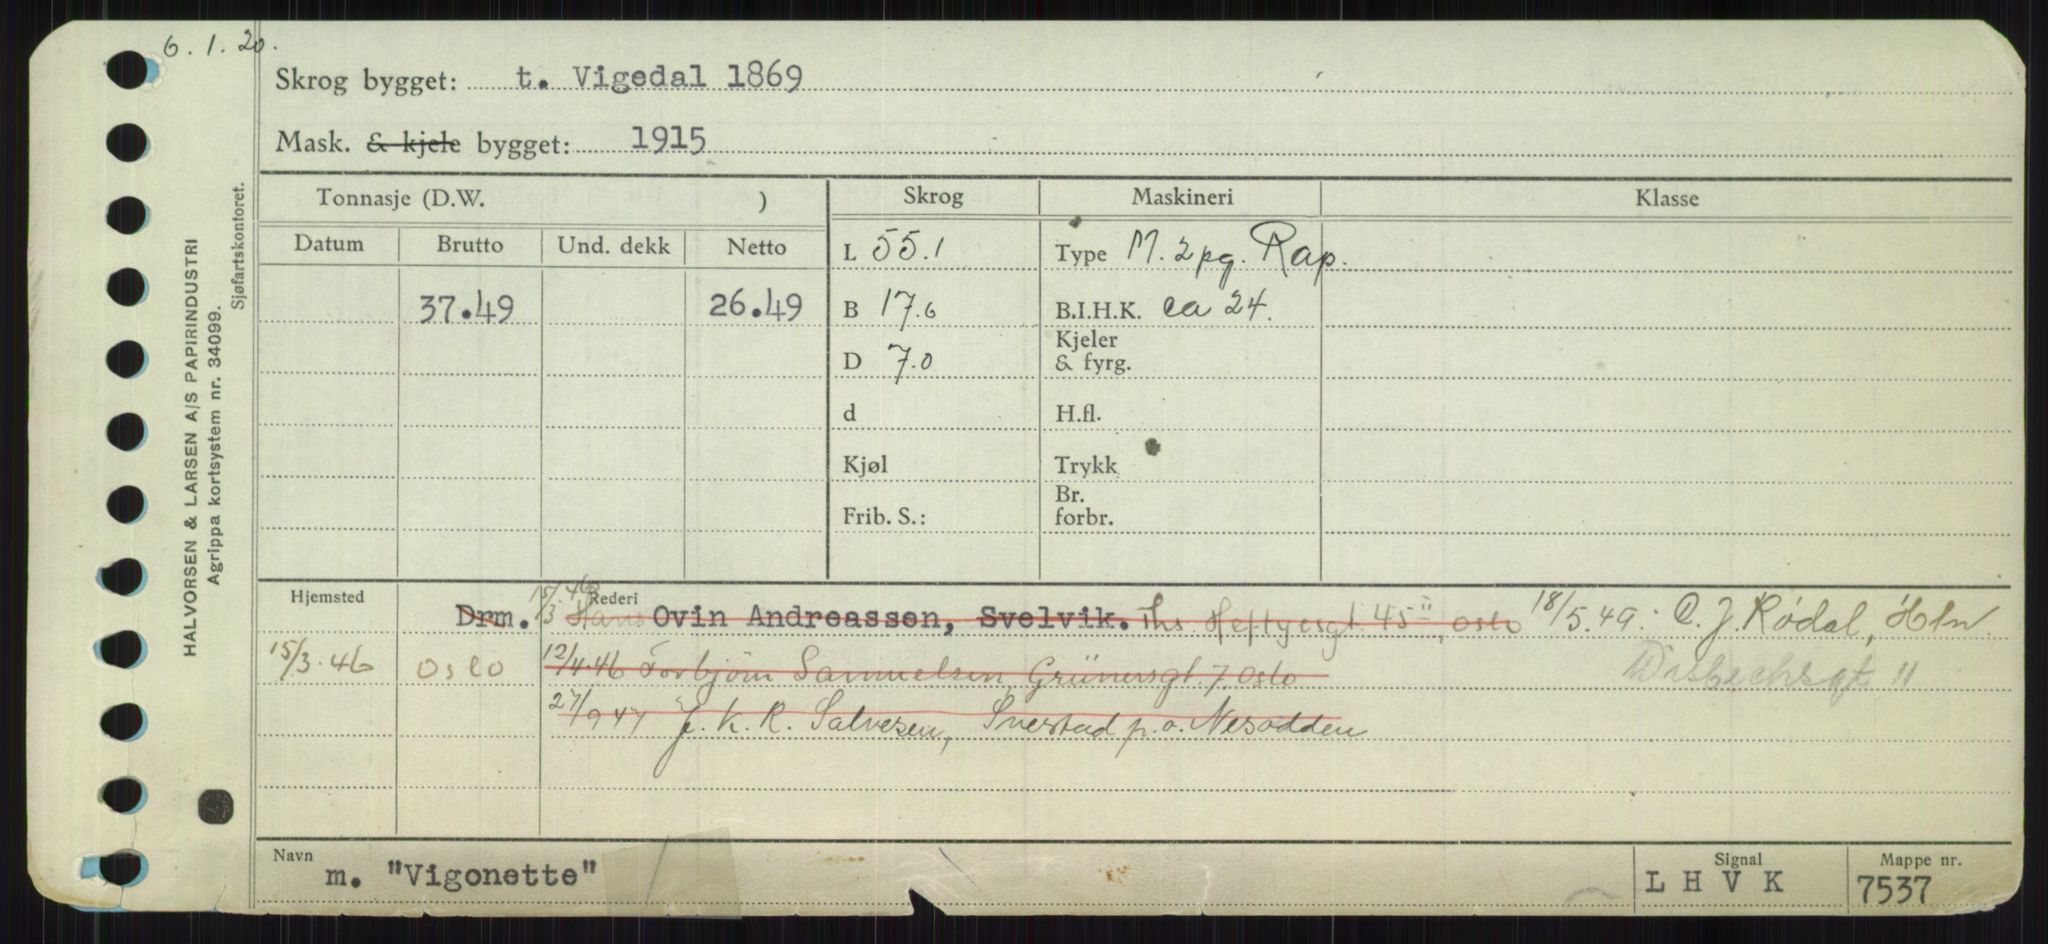 6.1.20.
Skrog bygget: t. Vigedal 1869
Mask. & kjele bygget: 1915
Tonnasje (D.W. ) Skrog Maskineri Klasse
Datum Brutto Und. dekk Netto
L 55.1 Type M. 2 pg. Rap.
37.49 26.49 B 17.6 B.I.H.K. ca 24.
D 7.0 Kjeler & fyrg.
d H.fl.
Kjøl Trykk
Frib. S.: Br. forbr.
Hjemsted Rederi
Drm. 15/3.46 Hans Ovin Andreassen, Svelvik. Ths Heftyesgt. 45 II, Oslo 18/5.49. J. Rødal, Hln
15/3.46 Oslo 12/4.46 Torbjörn Samuelsen Grünersgt. 7. Oslo 11
27/9 47 J. K. R. Salvesen, Svestad p.o. Nesodden
Navn m. "Vigonette" Signal LHVK Mappe nr. 7537
HALVORSEN & LARSEN A/S PAPIRINDUSTRI
Agrippa kortsystem nr. 34099.
Sjøfartskontoret.